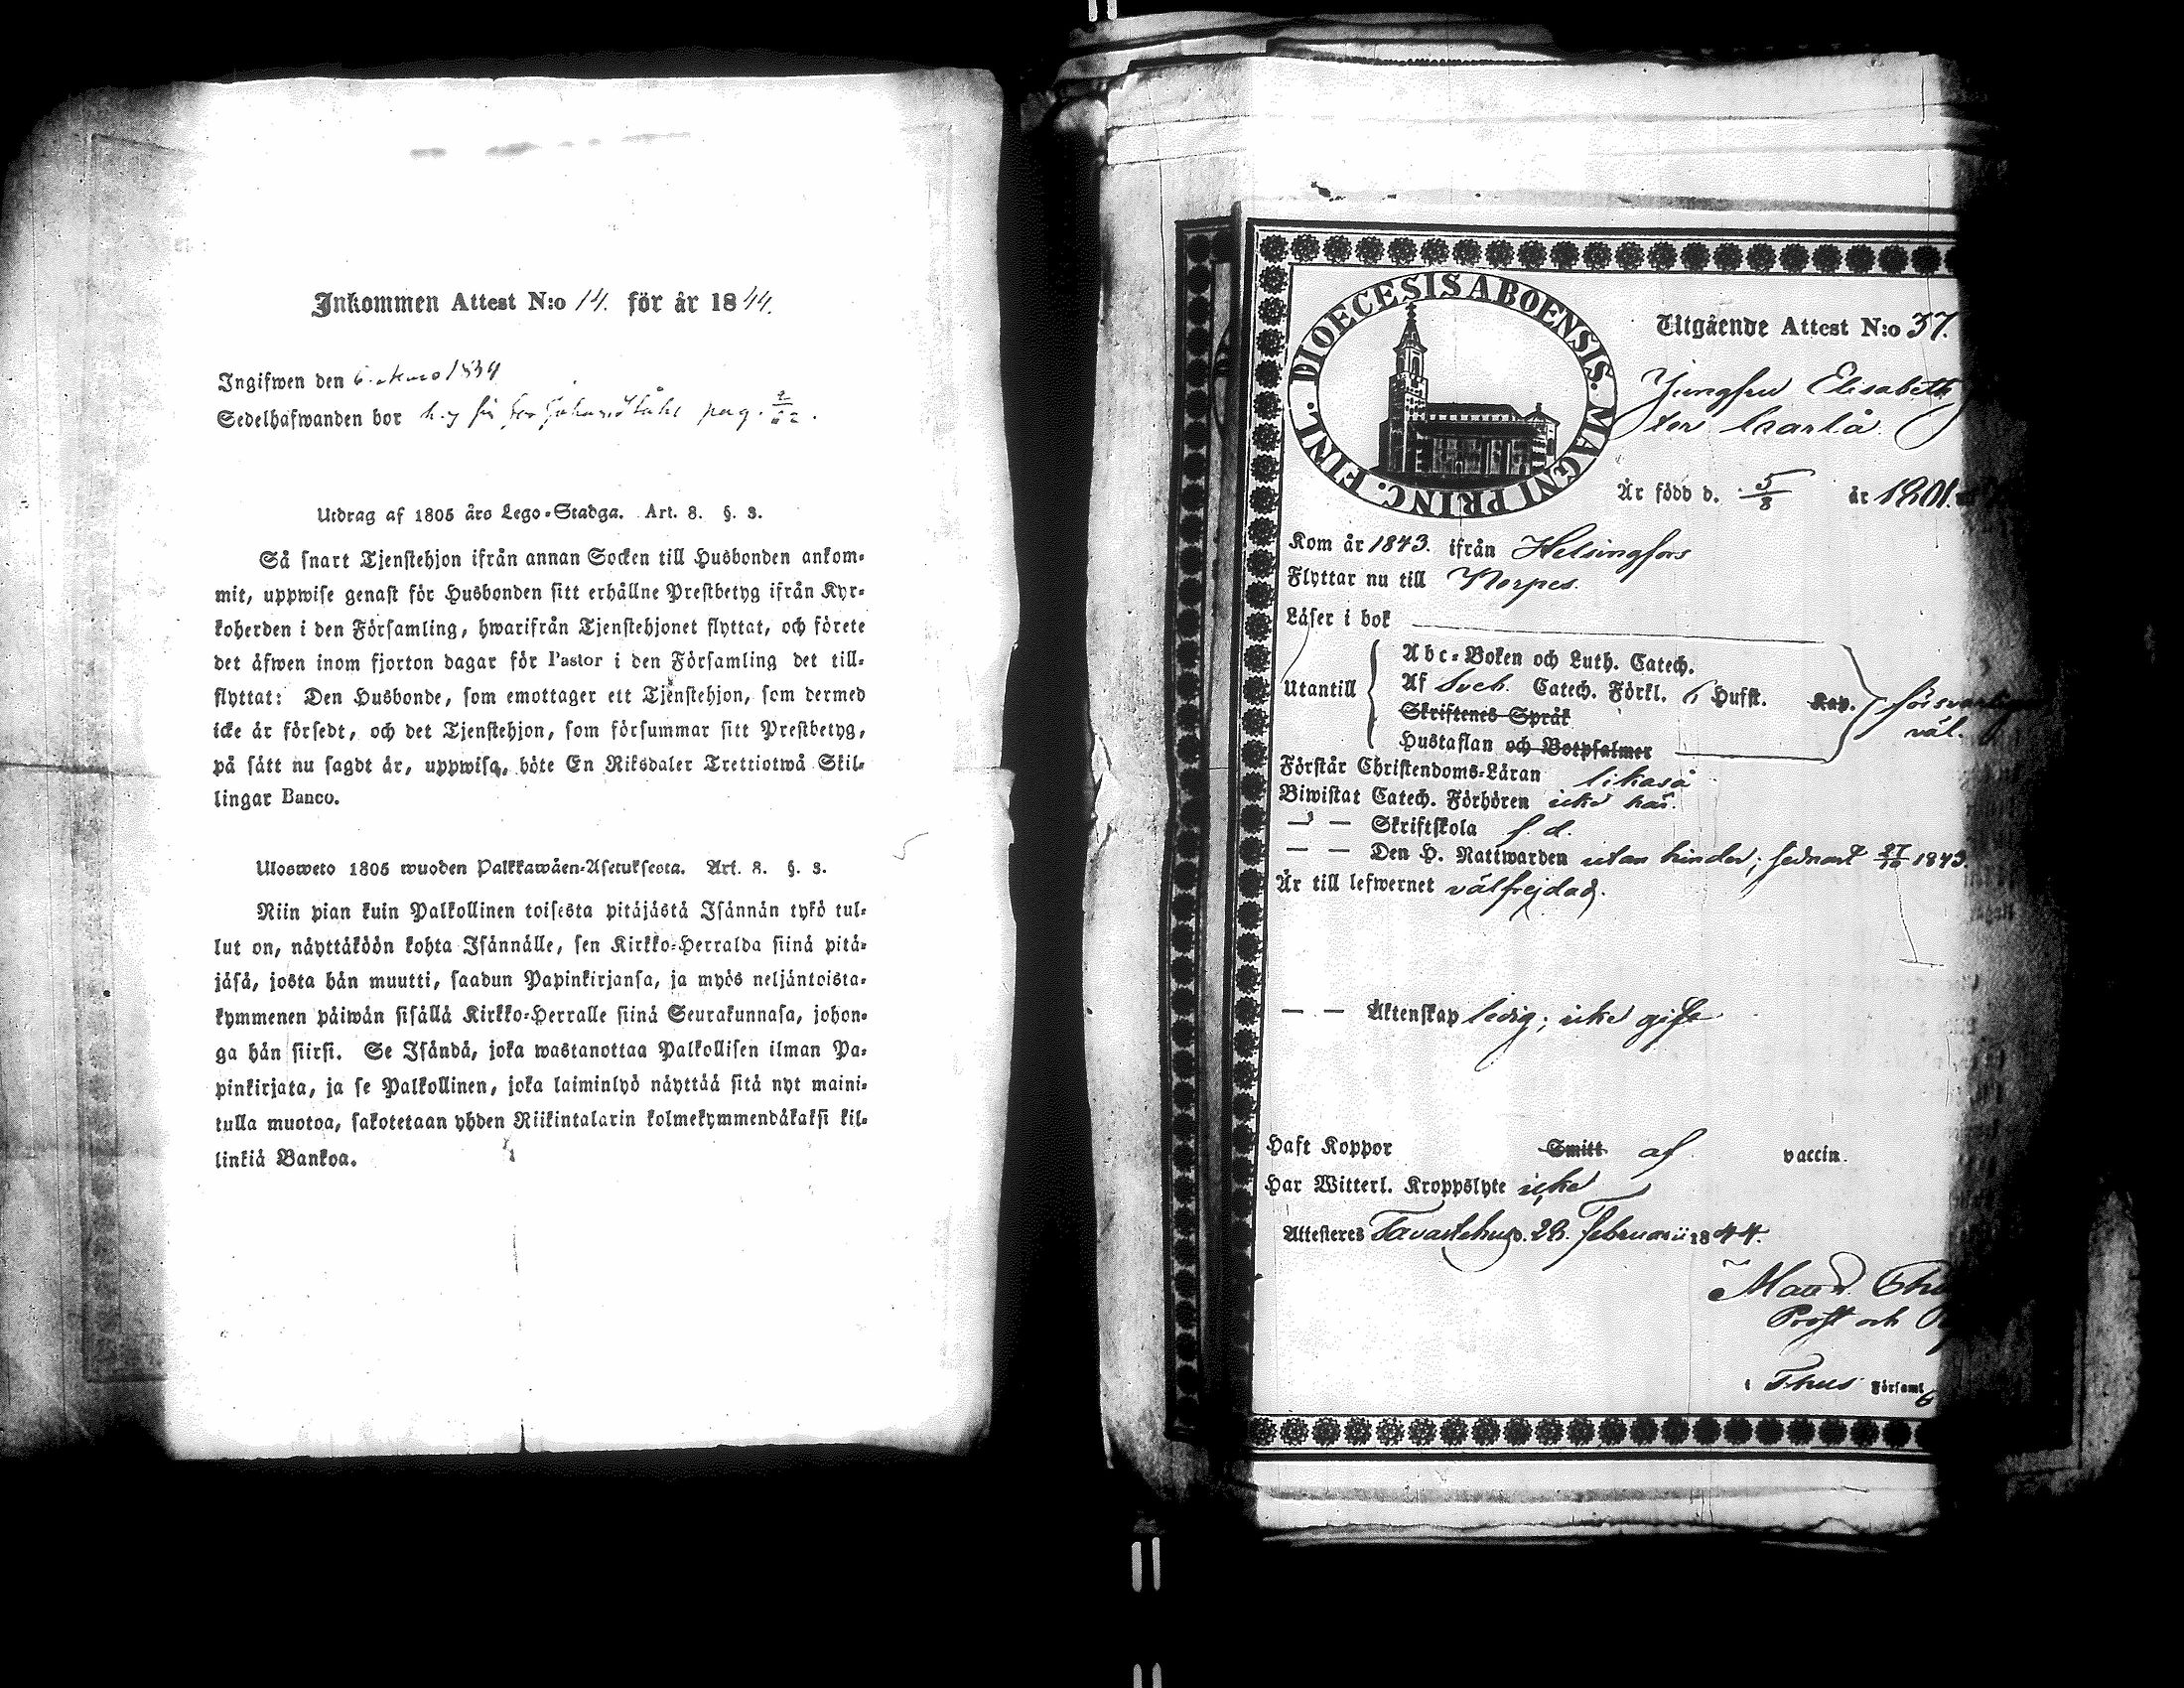 Inkommen Attest N:o 14. för år 1844.
Ingifwen den 6.
Sedelhafwanden bor pag.
Utdrag af 1805 års Lego-Stadga. Art. 8. §. 3.
Så snart Tjenstehjon ifrån annan Socken till Husbonden ankom-
mit, uppwise genast för Husbonden sitt erhållne Prestbetyg ifrån Kyr-
koherden i den Församling, hwarifrån Tjenstehjonet flyttat, och förete
det äfwen inom fjorton dagar för Pastor i den Församling det till-
flyttat: Den Husbonde, som emottager ett Tjenstehjon, som dermed
icke är försedt, och det Tjenstehjon, som försummar sitt Prestbetyg,
på sätt nu sagdt är, uppwisa, böte En Riksdaler Trettiotwå Skil-
lingar Banco.
Ulosweto 1805 wuoden Palkkawäen-Asetuksesta. Art. 8. §. 3.
Niin pian kuin Palkollinen toisesta pitäjästä Isännän tykö tul-
lut on, näyttäköön kohta Isännälle, sen Kirkko-Herralda siinä pitä-
jäsä, josta hän muutti, saadun Papinkirjansa, ja myös neljäntoista-
kymmenen päiwän sisällä Kirkko-Herralle siinä Seurakunnasa, johon-
ga hän siirsi. Se Isändä, joka wastanottaa Palkollisen ilman Pa-
pinkirjata, ja se Palkollinen, joka laiminlyö näyttää sitä nyt maini-
tulla muotoa, sakotetaan yhden Riikintalarin kolmekymmendäkaksi kil-
linkiä Bankoa.
DIOECESIS ABOENSIS. MAGNI PRINC. FINL.
Utgående Attest N:o 37.
Jungfru Elisabeth
Är född d. 5/8 år 1801.
Kom år 1843. ifrån Helsingfors
Flyttar nu till Nerpes.
Läser i bok
Utantill
Abc-Boken och Luth. Catech.
Af Sveb. Catech. Förkl. 6 Hufst. Kap. försvarligen
Skriftenes Språk väl.
Hustaflan och Botpsalmer
Förstår Christendoms-Läran likaså
Biwistat Catech. Förhören icke här.
— — Skriftskola f. d.
— — Den H. Nattwarden utan hinder; sednast 27/10 1843.
Är till lefwernet välfrejdad.
— — Äktenskap ledig; icke gift
Haft Koppor Smitt af vaccin.
Har Witterl. Kroppslyte icke
Attesteres Tavastehus d. 28. Februarii 1844.
Prost och
i Thus Församl
6